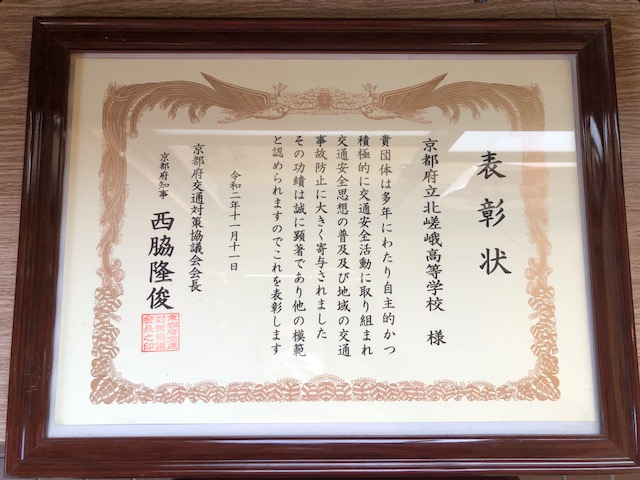 表彰状
京都府立北嵯峨高等学校 様
貴団体は多年にわたり自主的かつ
積極的に交通安全活動に取り組まれ
交通安全思想の普及及び地域の交通
事故防止に大きく寄与されました
その功績は誠に顕著であり他の模範
と認められますのでこれを表彰します
令和二年十一月十一日
京都府交通対策協議会会長
京都府知事 西脇隆俊
京都府交通
対策協議
会長之印